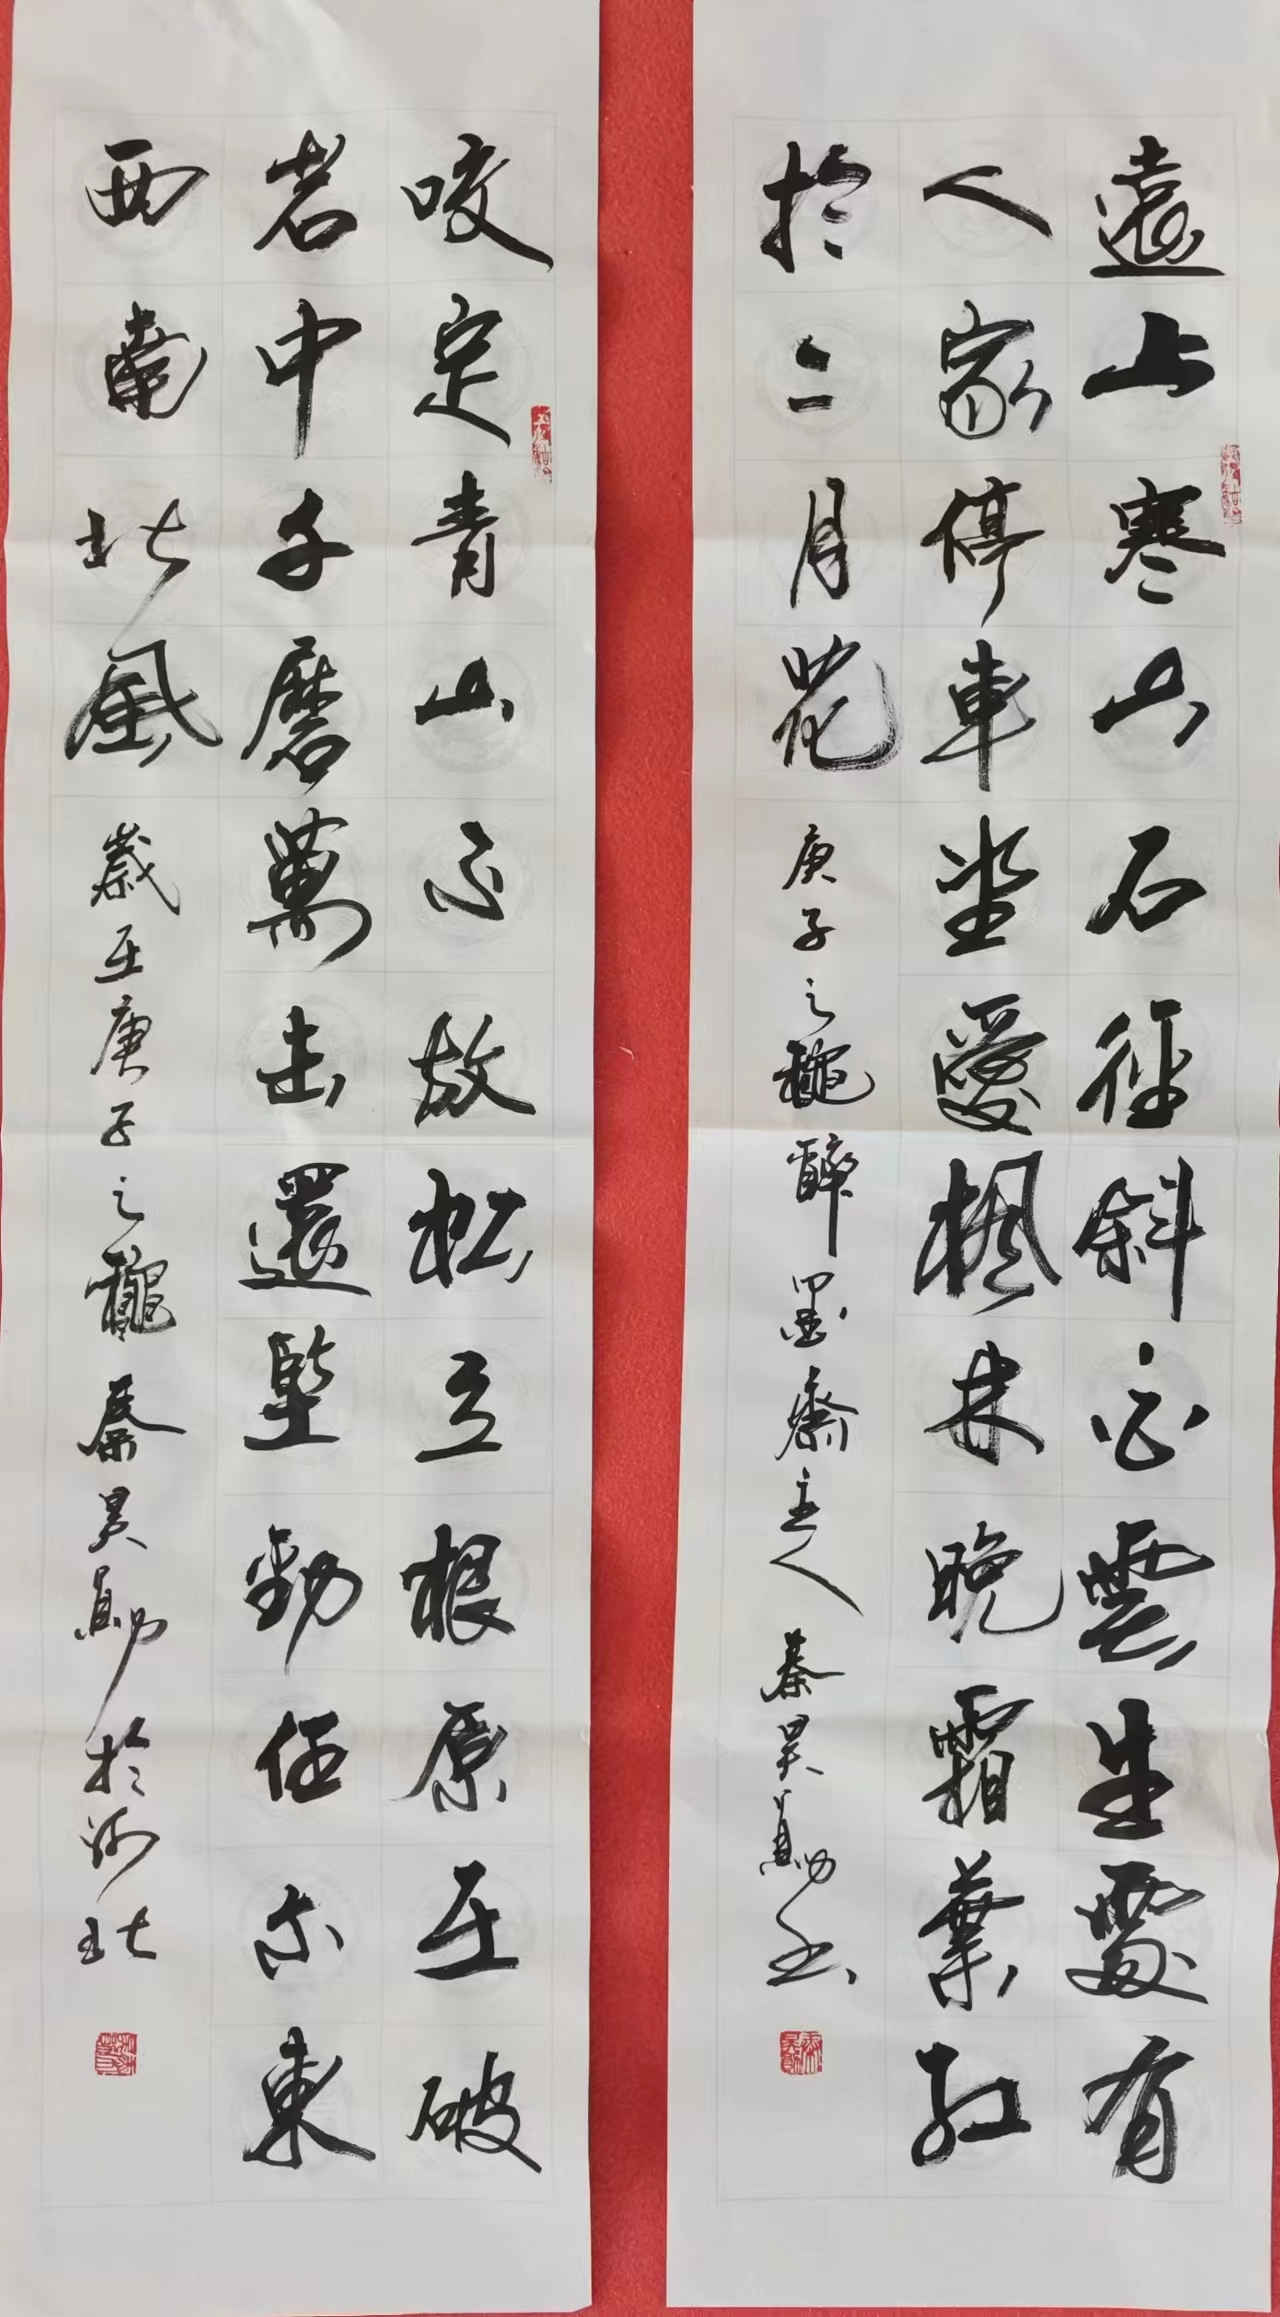 遠上寒山石徑斜白雲生處有
人家停車坐愛楓林晚霜葉紅
於二月花 庚子之龝醉墨齋主人 秦昊勛书
咬定青山不放松立根原在破
岩中千磨萬击還堅勁任尔東
西南北風 歲在庚子之龝秦昊勛於河北